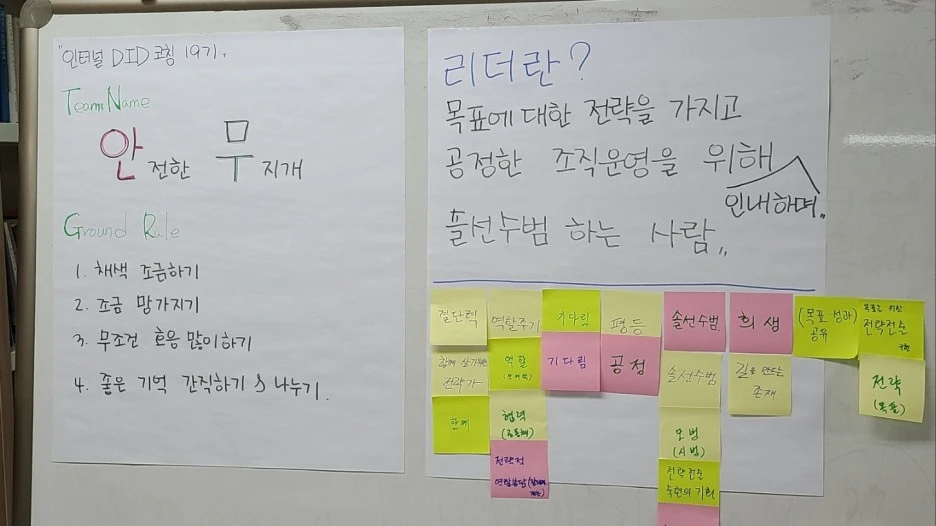 "인터널 DID 코칭 19기.
Team Name
안전한 무지개
Ground Rule
1. 채색 조금하기
2. 조금 망가지기
3. 무조건 호응 많이하기
4. 좋은 기억 간직하기 & 나누기.
리더란?
목표에 대한 전략을 가지고
공정한 조직운영을 위해
인내하며..
솔선수범 하는 사람,,
결단력
역할주기
기다림
평등
솔선수범
희생
(목표 성과)
공유
목표를 위한
전략전술
함께 살기위한
전략가
역할
기다림
공정
솔선수범
길을 만드는
존재
전략
함께
협력
모범
(시범)
전략적
전략전술